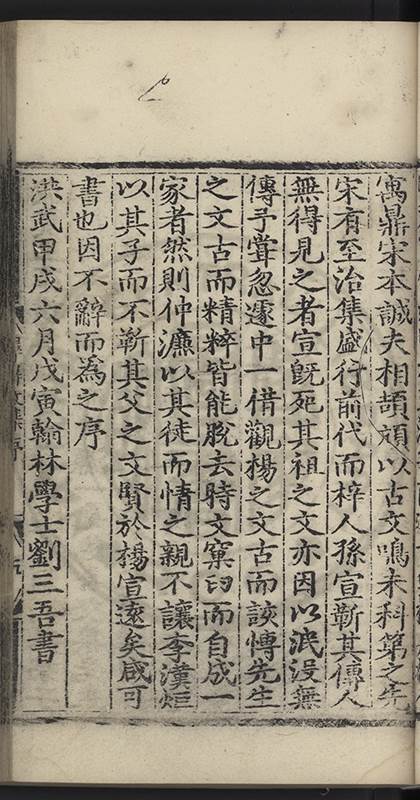 寓鼎宋本誠夫相頡頏以古文鳴未科第之先
宋有至治集盛行前代而梓人孫宣靳其傳人
無得見之者宣旣死其祖之文亦因以泯没無
傳予甞忽遽中一借觀楊之文古而該愽先生
之文古而精粹皆能脫去時文窠臼而自成一
家者然則仲濂以其徒而情之親不讓李漢烜
以其子而不靳其父之文賢於楊宣遠矣咸可
書也因不辭而為之序
洪武甲戌六月戊寅翰林學士劉三吾書